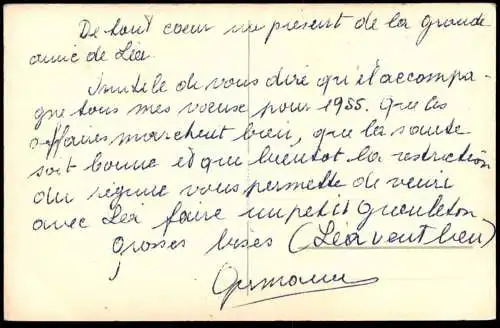 De tout coeur un présent de la grande
amie de Léa.
Inutile de vous dire qu'il accompa-
gne tous mes voeux pour 1955. Que les
affaires marchent bien, que la santé
soit bonne et que bientôt la restriction
du régime vous permette de venir
avec Léa faire un petit gueuleton
Grosses bises (Léa veut bien)
Germaine